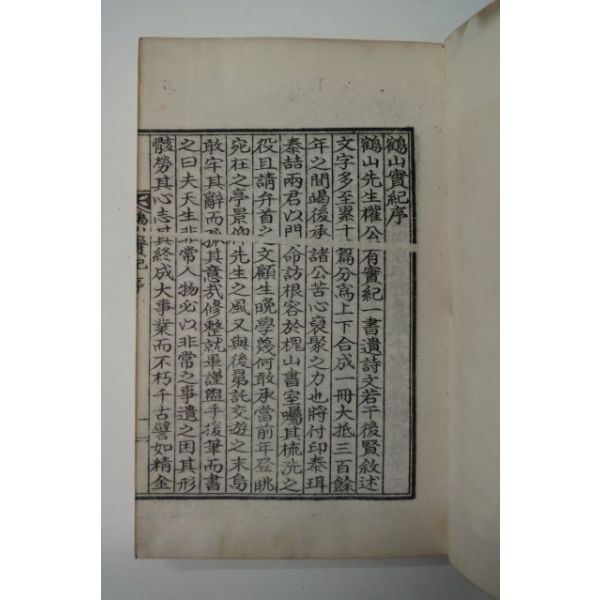 鶴山實紀序
鶴山先生權公有實紀一書遺詩文若干後賢敘述
文字多至累十篇分爲上下合成一冊大抵三百餘
年之間竭後承諸公苦心裒聚之力也將付印泰珥
泰喆兩君以門命訪根容於槐山書室囑其梳洗之
役且請弁首之文顧生晚學蔑何敢承當前年登眺
宛在之亭景仰先生之風又與後昴託交遊之末烏
敢牢其辭而孤其意哉修整就畢謹盥手後筆而書
之曰夫天生非常人物必以非常之事遺之困其形
骸勞其心志其終成大事業而不朽千古譬如精金
實紀序